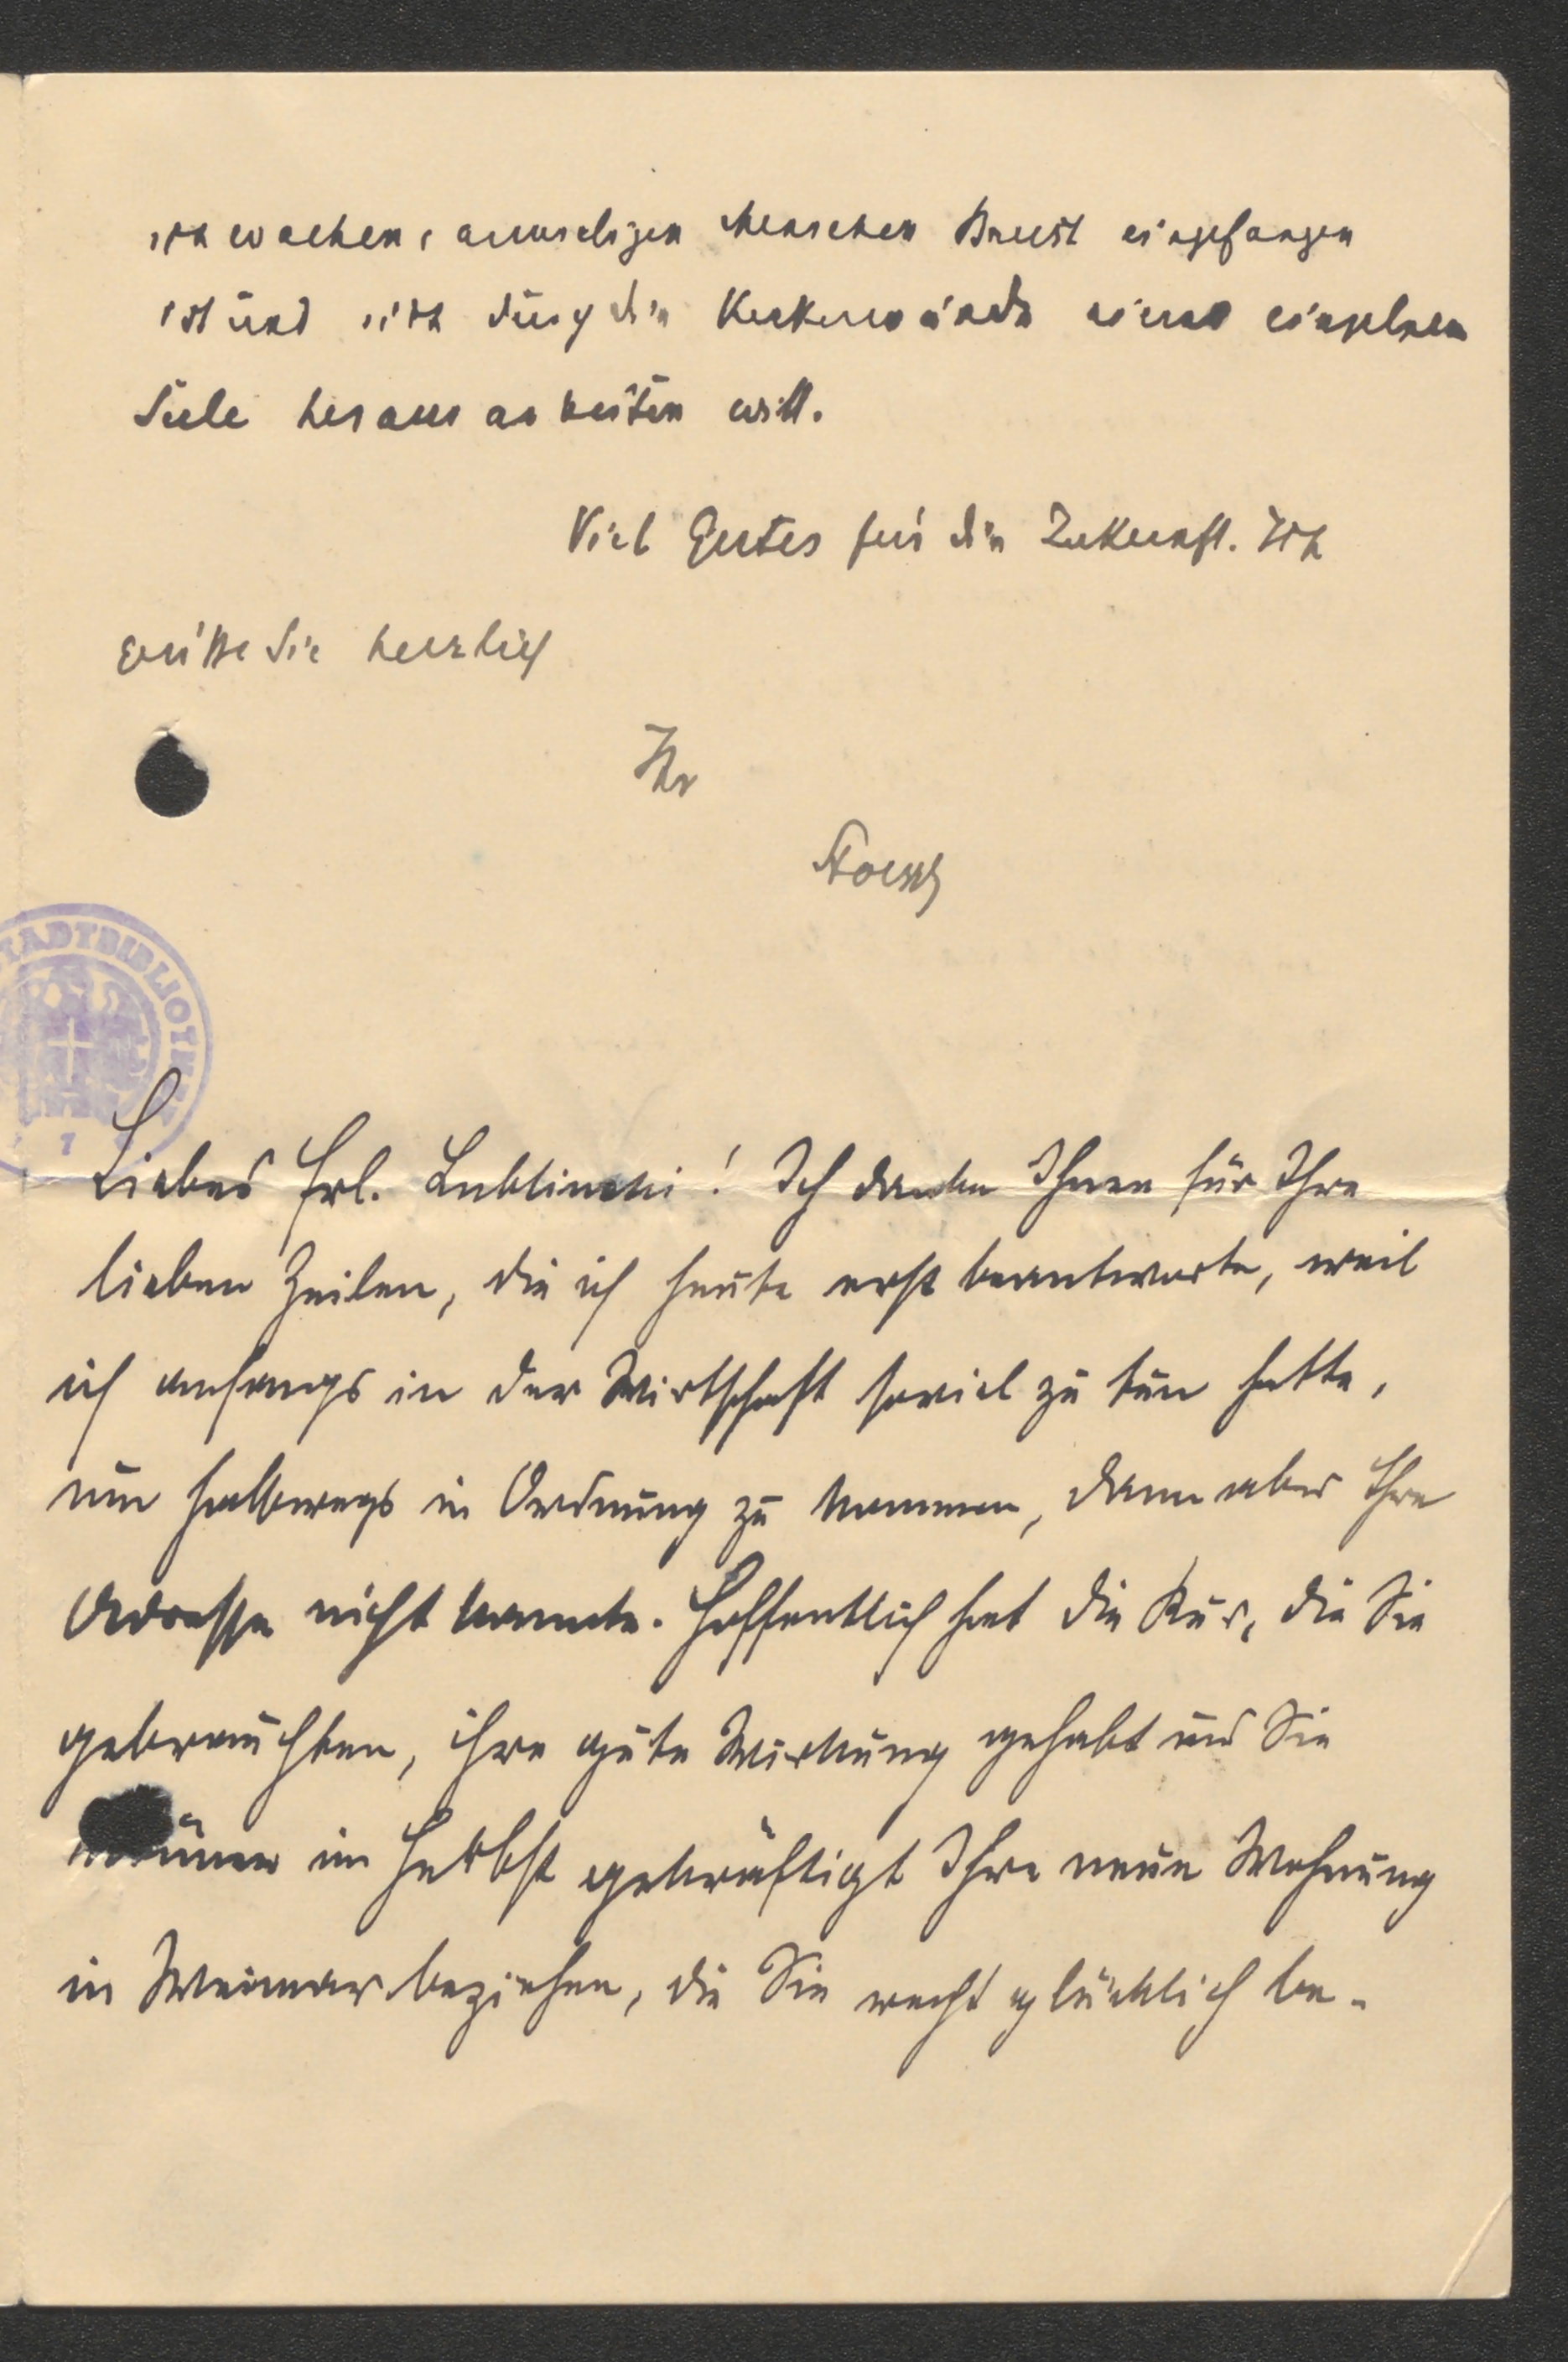 schwachen, armseligen Menschen Brust eingefangen
ist und sich durch die Kerkerwände seiner einzelnen
Seele herausarbeiten will.
Viel Gutes für die Zukunft. Ich
grüsse Sie herzlich
Ihr
STADTBIBLIOTHEK
7
Liebes Frl. Lublinski! Ich danke Ihnen für Ihre
lieben Zeilen, die ich heute erst beantworte, weil
ich anfangs in der Wirtschaft soviel zu tun hatte,
um halbwegs in Ordnung zu kommen, dann aber Ihre
Adresse nicht kannte. Hoffentlich hat die Kur, die Sie
gebrauchten, ihre gute Wirkung gehabt und Sie
können im Herbst gekräftigt Ihre neue Wohnung
in Weimar beziehen, die Sie recht glücklich be-